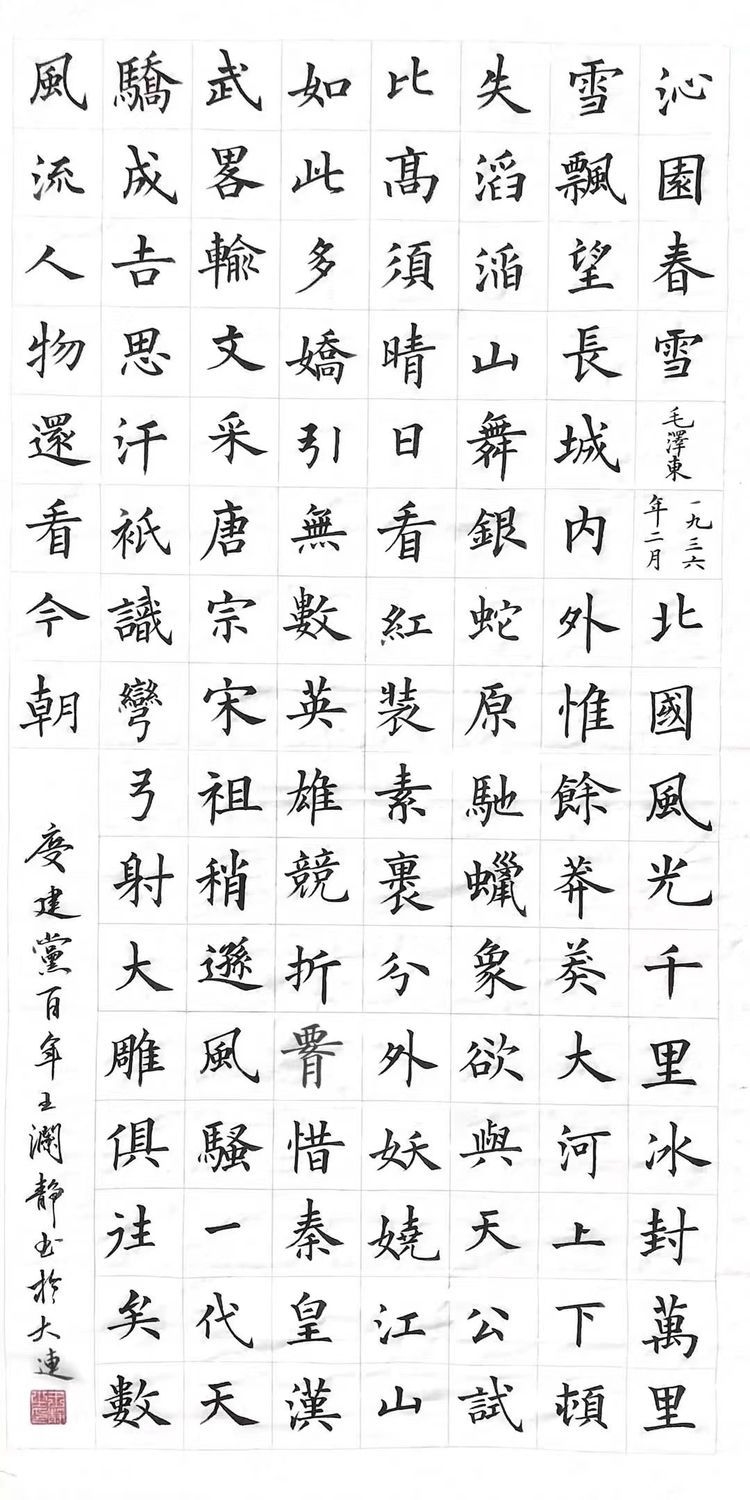 沁園春雪 毛澤東 一九三六年二月 北國風光千里冰封萬里
雪飄望長城内外惟餘莽莽大河上下頓
失滔滔山舞銀蛇原馳蠟象欲與天公試
比髙須晴日看紅裝素裹分外妖嬈江山
如此多嬌引無數英雄競折腰惜秦皇漢
武畧輸文采唐宗宋祖稍遜風騷一代天
驕成吉思汗祇識彎弓射大雕俱往矣數
風流人物還看今朝
慶建黨百年王瀾静书於大連